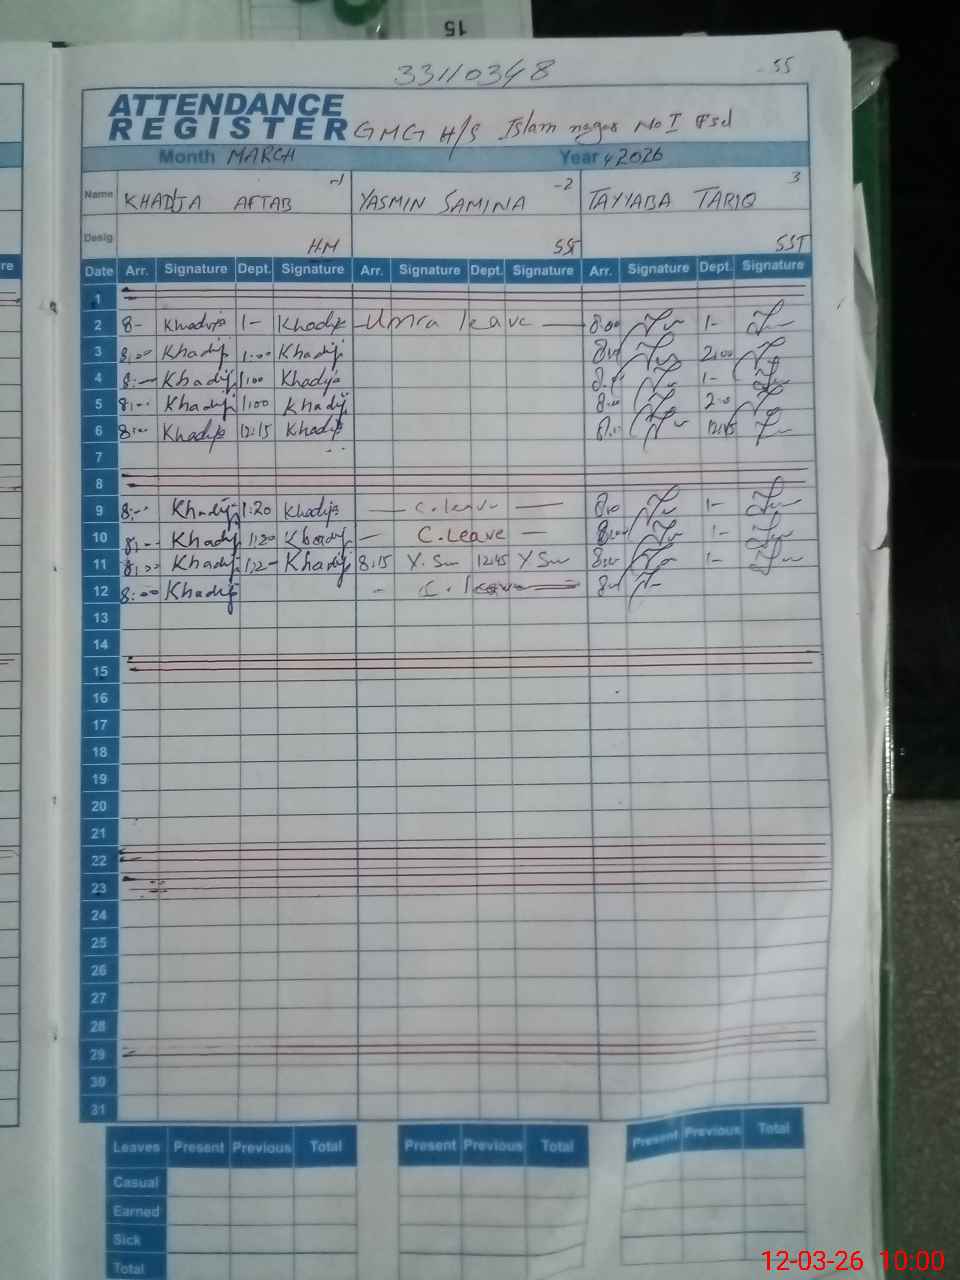 15
33110348
55
ATTENDANCE
REGISTER GMG H/S Islam nagar No I Fsd
Month MARCH Year 2026
-1 -2 3
Name KHADIJA AFTAB YASMIN SAMINA TAYYABA TARIQ
Desig. H.M SST SST
Date Arr. Signature Dept. Signature Arr. Signature Dept. Signature Arr. Signature Dept. Signature
1
2 8- Khadija 1- Khadija Umra leave 8.00 1-
3 8:00 Khadij 1:00 Khadij 2:00
4 8:- Khadij 1:00 Khadija 1-
5 8:-- Khadij 1:00 Khadij 8:00 2:0
6 8:-- Khadija 12:15 Khadija 12:45
7
8
9 8:- Khadij 1:20 Khadija C.leave 1-
10 8:-- Khadij 1:20 Khadij C.Leave 8:00 1-
11 8:00 Khadij 1:2- Khadij 8:15 Y. Sm 12:45 Y Sm 1-
12 8:00 Khadij C. leave
13
14
15
16
17
18
19
20
21
22
23
24
25
26
27
28
29
30
31
Leaves Present Previous Total Present Previous Total Present Previous Total
Casual
Earned
Sick
Total
12-03-26 10:00